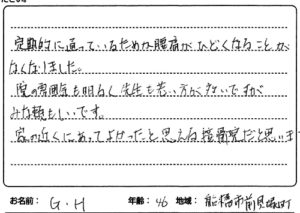 定期的に通っているためか腰痛がひどくなることが
なくなりました。
院の雰囲気も明るく先生も若い方が多いですが
みな頼もしいです。
家の近くにあってよかったと思える接骨院だと思います
お名前: G・H 年齢: 46 地域: 船橋市前貝塚町